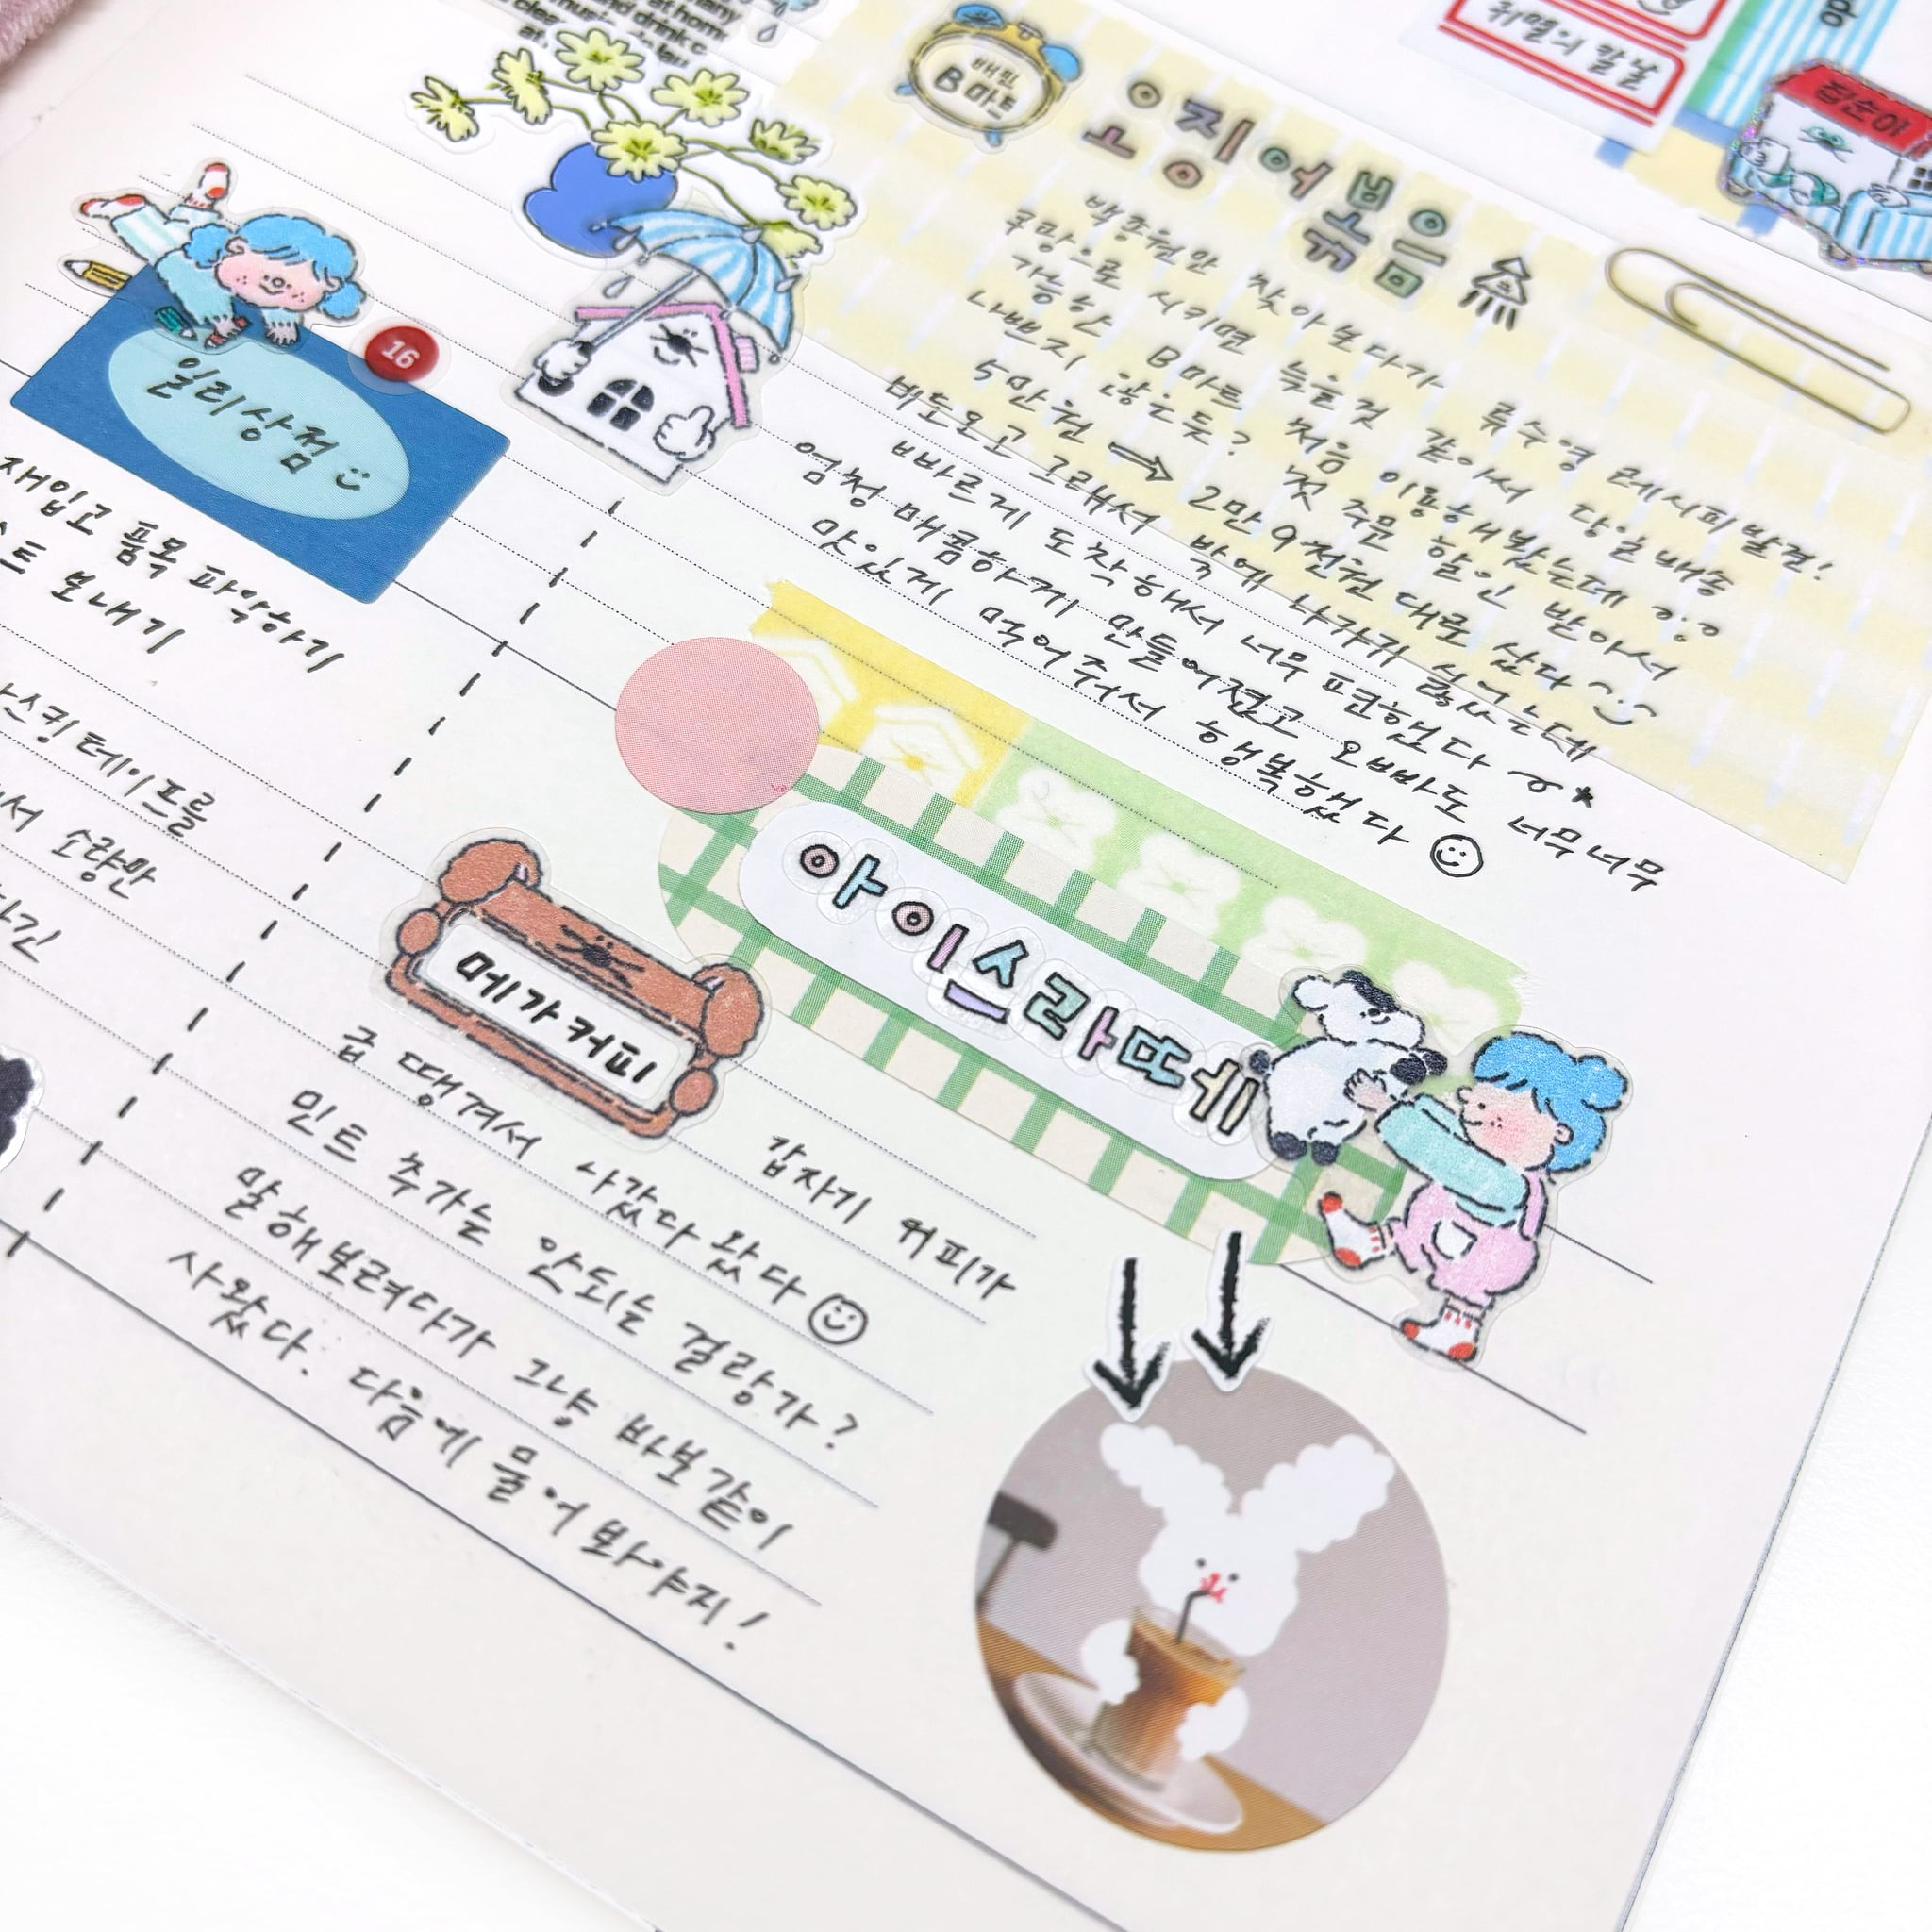 at home
and drink c
배민
B마트
오징어볶음
백종원만 찾아보다가 류수영 레시피 발견!
쿠팡으로 시키면 늦을것 같아서 당일배송
가능한 B마트 처음 이용해봤는데
나쁘지 않은듯? 첫 주문 할인 받아서
5만원 ⇒ 2만 9천원 대로 샀다
비도오고 그래서 밖에 나가기 싫었는데
빠르게 도착해서 너무 편했다
엄청 매콤하게 만들어졌고 오빠도 너무너무
맛있게 먹어주서 행복했다
집순이
16
윌리상점
재입고 품목 파악하기
보내기
스킹테이프를
서 소량만
메가커피
아이스라떼
갑자기 커피가
급 땡겨서 나갔다왔다
민트 추가는 안되는 걸랑가?
말해보려다가 그냥 바보같이
사왔다. 다음에 물어봐야지!